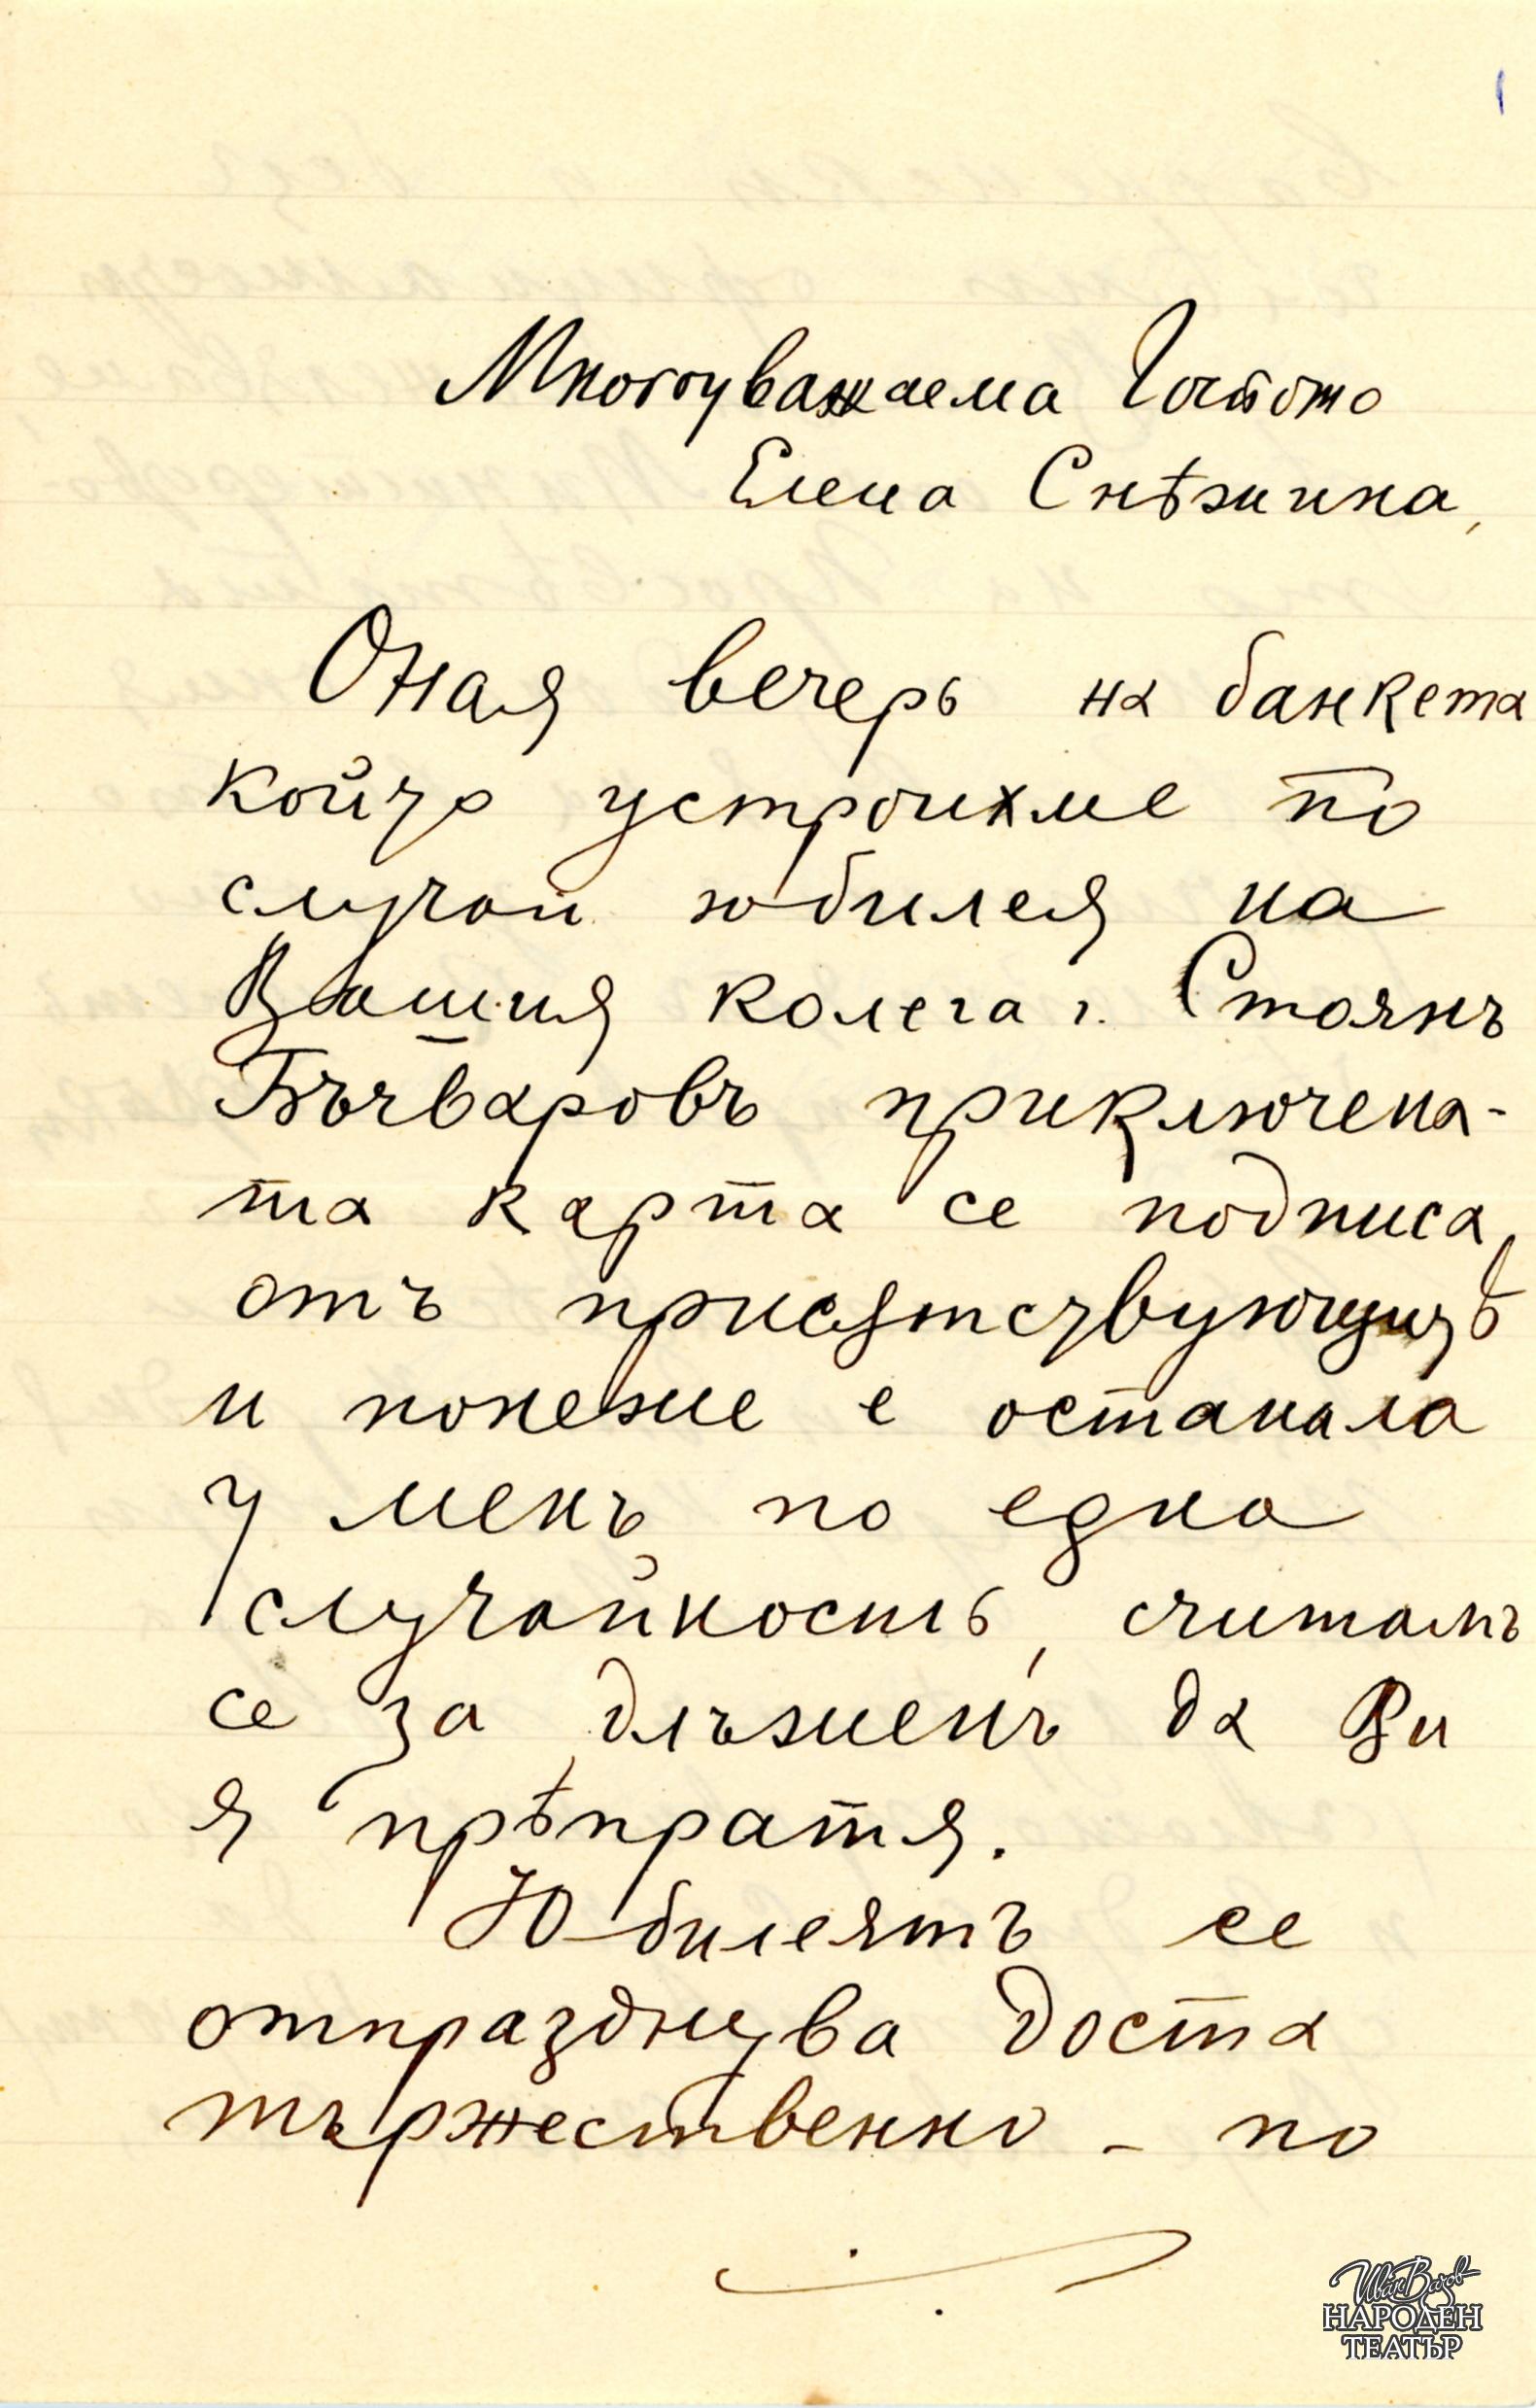 Многоуважаема Госпожо
Елена Снѣжина,
Оная вечерь на банкета
който устроихме по
случай юбилея на
Вашия колега г. Стоянъ
Бъчваровъ приключена-
та карта се подписа
отъ присѫтствующитѣ
и понеже е останала
у менъ по една
случайность, считамъ
се за длъженъ да Ви
я прѣпратя.
Юбилеятъ се
отпразднува доста
тържественно - по
Иван Вазов
НАРОДЕН
ТЕАТЪР